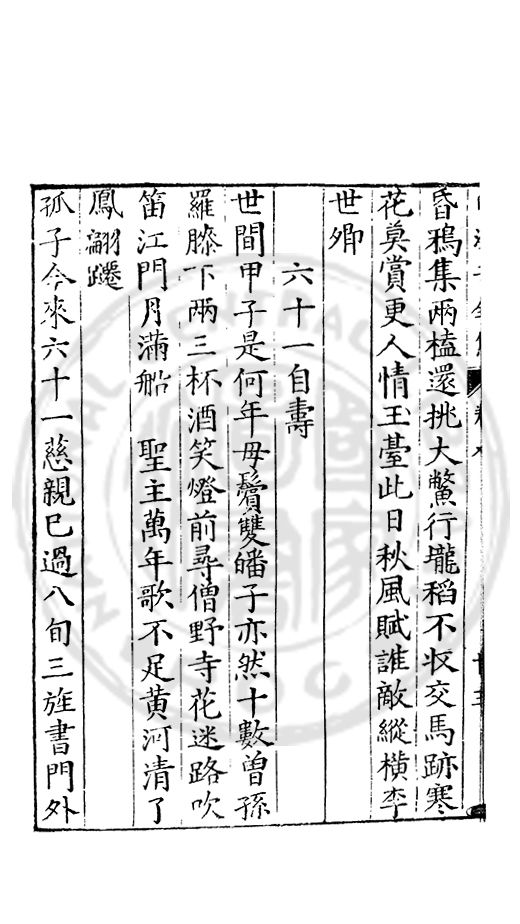 昏鴉集兩榼還挑大鱉行壠稻不收交馬跡寒
花莫賞更人情玉臺此日秋風賦誰敵縱橫李
世卿
六十一自壽
世間甲子是何年母鬢雙皤子亦然十數曾孫
羅膝下兩三杯酒笑燈前尋僧野寺花迷路吹
笛江門月滿船　聖主萬年歌不足黃河清了
鳳翩躚
孤子今來六十一慈親已過八旬三旌書門外